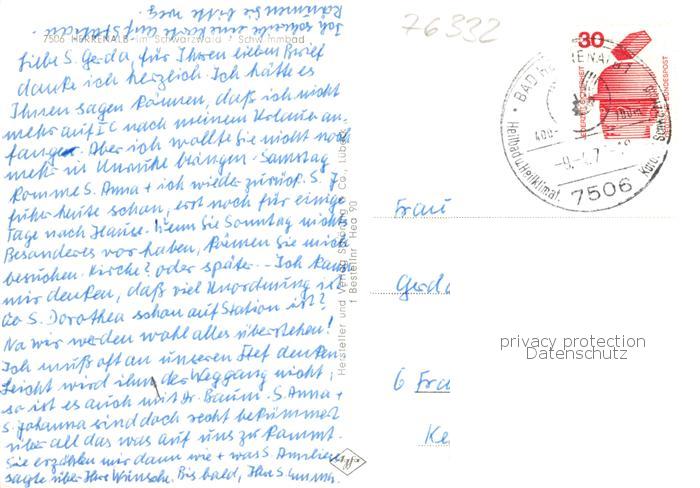 Ich schreibe eine Karte auf Station.
Räumen Sie bitte weg.
7506 HERRENALB im Schwarzwald Schwimmbad
Liebe S. Gerda, für Ihren lieben Brief
danke ich herzlich. Ich hätte es
Ihnen sagen können, daß ich nicht
mehr auf IC nach meinem Urlaub an-
fange. Aber ich wollte Sie nicht noch
mehr in Unruhe bringen. Samstag
komme S. Anna + ich wieder zurück. S. J.
fuhr heute schon, erst noch für einige
Tage nach Hause. Wenn Sie Sonntag nichts
Besonderes vor haben, können Sie mich
besuchen. Kirche? oder später. - Ich kann
mir denken, daß viel Unordnung ist
wo S. Dorothea schon auf Station ist?
Na wir werden wohl alles überstehen!
Ich muß oft an unseren Chef denken
Leicht wird ihm der Weggang nicht,
so ist es auch mit Dr. Baum. S. Anna +
S. Johanna sind doch recht bekümmert
über all das was auf uns zu kommt.
Sie erzählen mir dann wie + was S.
sagte über Ihre Wünsche. Bis bald, Ihre S.
Hersteller und Verlag Schöning + Co., Lübeck
Bestellnr Hea 90
Agfa
76332
30
JEDERZEIT SICHERHEIT
DEUTSCHE BUNDESPOST
BAD HERRENALB
Heilbad u. Heilklimat. Kurort Schwarzwald
400- 700m
7506
Frau
Gerda
6 Fra
Ke
privacy protection
Datenschutz